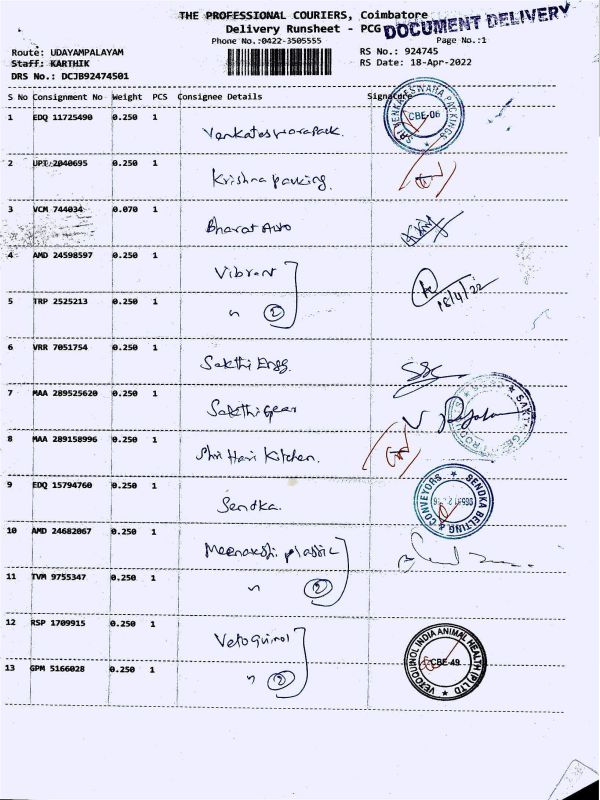 THE PROFESSIONAL COURIERS, Coimbatore
DOCUMENT DELIVERY
Delivery Runsheet - PCG
Phone No.:0422-3505555 Page No.:1
Route: UDAYAMPALAYAM RS No.: 924745
Staff: KARTHIK RS Date: 18-Apr-2022
DRS No.: DCJB92474501
S No Consignment No Weight PCS Consignee Details Signature
1 EDQ 11725490 0.250 1 Venkateswarapack.
SRI VENKATESWARA PACKINGS CBE-06
2 UPT 2040695 0.250 1 Krishna packing.
3 VCM 744034 0.070 1 Bharat Auto
4 AMD 24598597 0.250 1 Vibrant
18/4/22
5 TRP 2525213 0.250 1 " 2
6 VRR 7051754 0.250 1 Sakthi Engg.
7 MAA 289525620 0.250 1 Sakthi Gear
8 MAA 289158996 0.250 1 Shri Hari Kitchen.
9 EDQ 15794760 0.250 1 Sendka.
SENDKA BELTING & CONVEYORS
10 AMD 24682067 0.250 1 Meenakshi plastic
11 TVM 9755347 0.250 1 " 2
12 RSP 1709915 0.250 1 Vetoquinol
VETOQUINOL INDIA ANIMAL HEALTH (P) LTD CBE-49
13 GPM 5166028 0.250 1 " 2